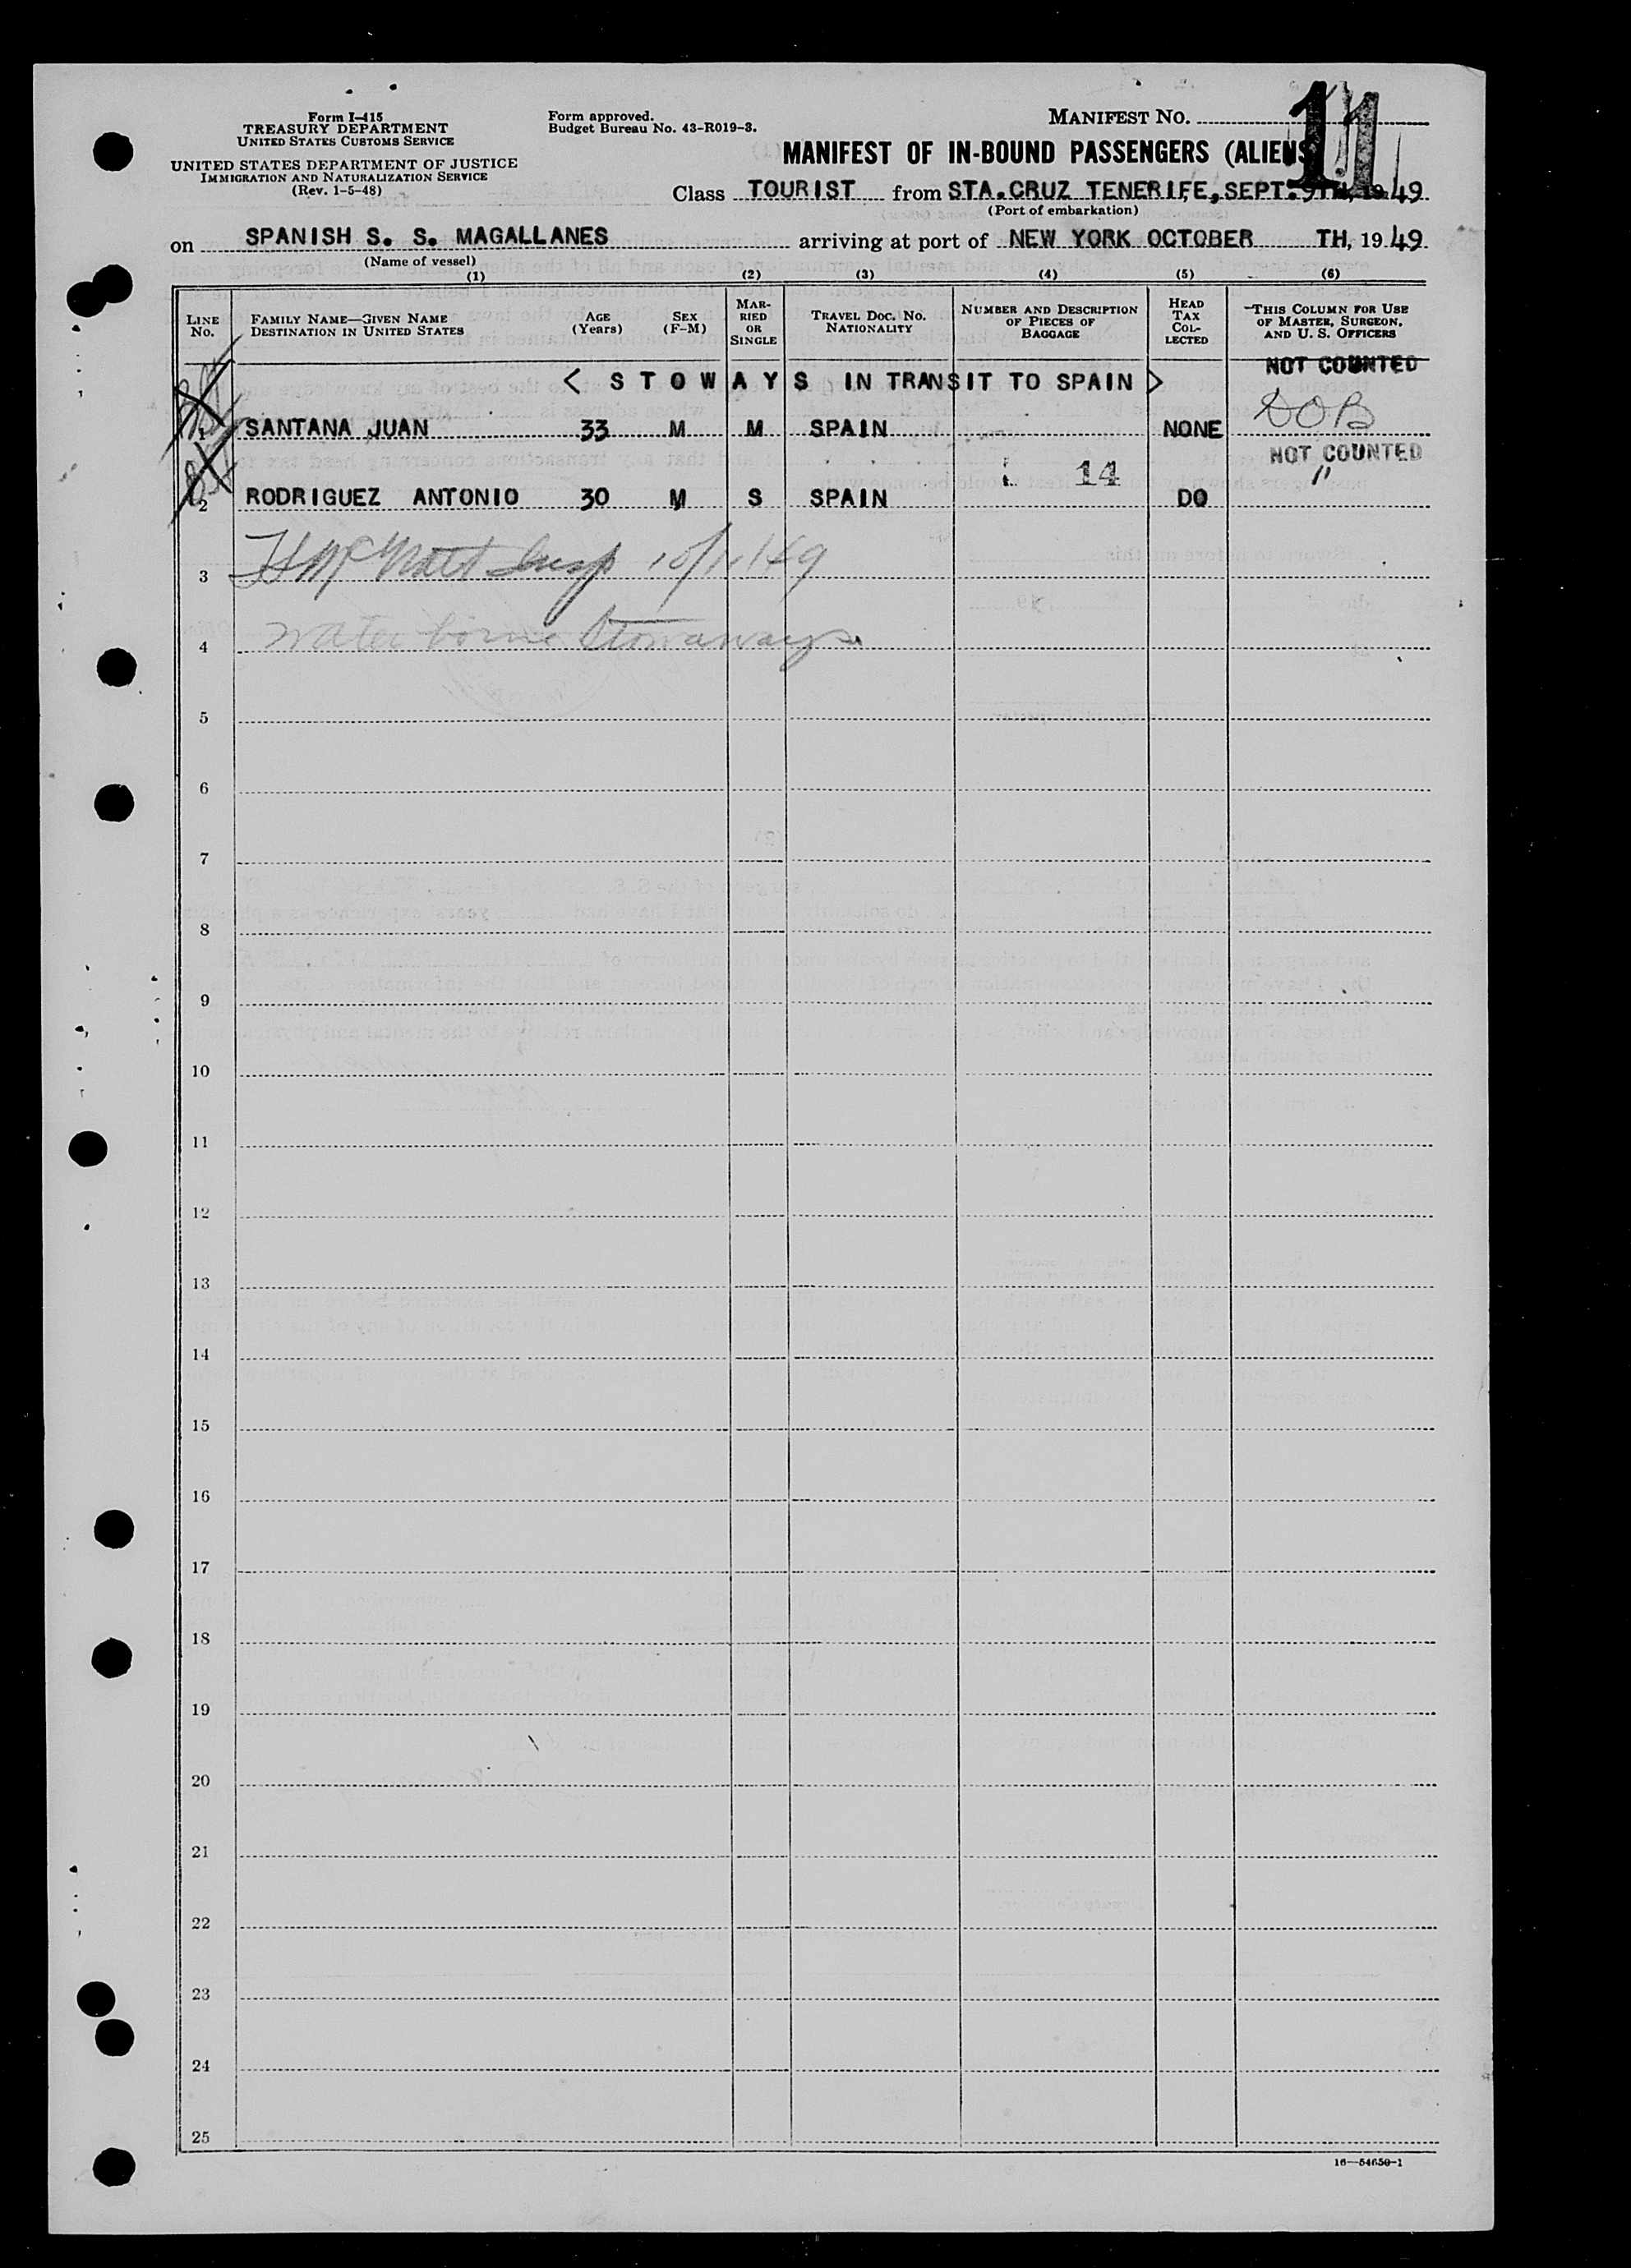 Form I-415
TREASURY DEPARTMENT
UNITED STATES CUSTOMS SERVICE
UNITED STATES DEPARTMENT OF JUSTICE
IMMIGRATION AND NATURALIZATION SERVICE
(Rev. 1-5-48)
Form approved.
Budget Bureau No. 43-R019-3.
MANIFEST NO. 11
MANIFEST OF IN-BOUND PASSENGERS (ALIENS
Class TOURIST from STA.CRUZ TENERIFE, SEPT. 9TH, 1949
(Port of embarkation)
on SPANISH S. S. MAGALLANES arriving at port of NEW YORK OCTOBER TH, 1949
(Name of vessel)
(1) (2) (3) (4) (5) (6)
LINE NO.
FAMILY NAME—GIVEN NAME
DESTINATION IN UNITED STATES
AGE (Years)
SEX (F-M)
MARRIED OR SINGLE
TRAVEL DOC. NO. NATIONALITY
NUMBER AND DESCRIPTION OF PIECES OF BAGGAGE
HEAD TAX COLLECTED
THIS COLUMN FOR USE OF MASTER, SURGEON, AND U. S. OFFICERS
NOT COUNTED
< S T O W A Y S IN TRANSIT TO SPAIN >
1 SANTANA JUAN 33 M M SPAIN NONE DOB
NOT COUNTED
14
2 RODRIGUEZ ANTONIO 30 M S SPAIN DO "
3 Insp 10/11/49
4 Water borne Stowaways.
5
6
7
8
9
10
11
12
13
14
15
16
17
18
19
20
21
22
23
24
25
16—54650-1